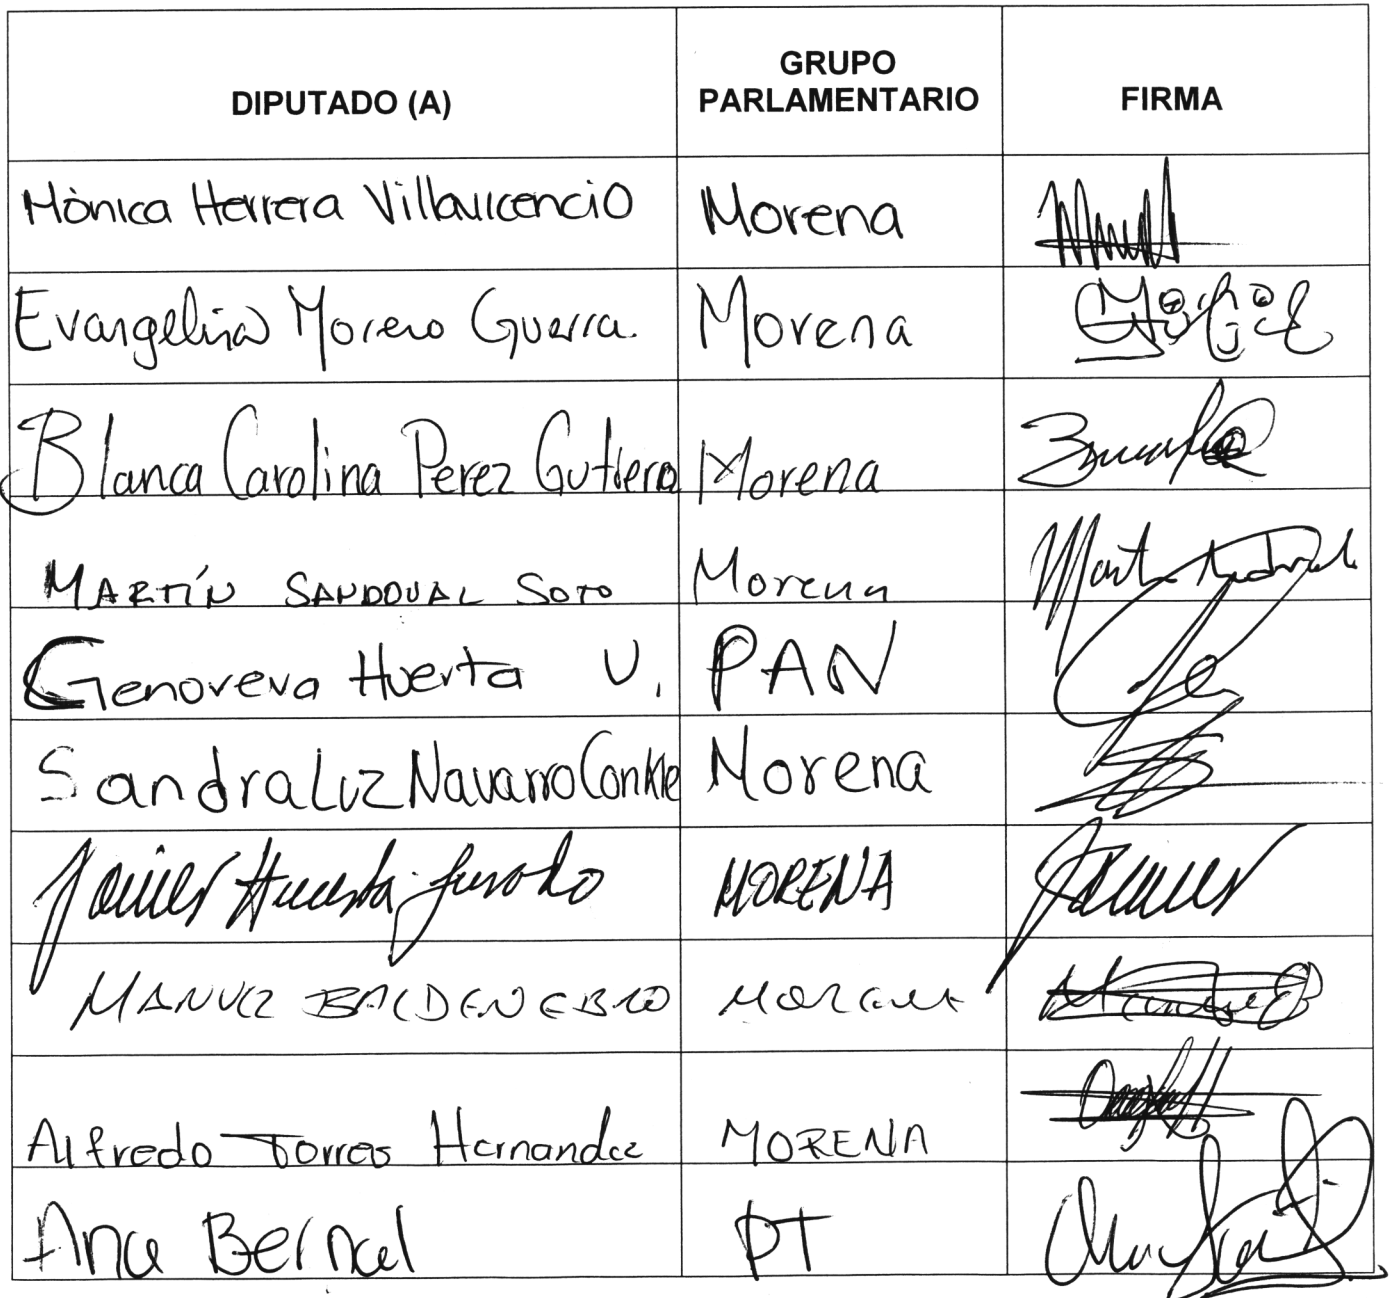 DIPUTADO (A) GRUPO PARLAMENTARIO FIRMA
Mònica Herrera Villavicencio Morena
Evangelina Moreno Guerra. Morena
Blanca Carolina Perez Gutierrez Morena
MARTÍN SANDOVAL SOTO Morena
Genoveva Huerta V. PAN
Sandra Luz Navarro Conkle Morena
Javier Huerta Jurado MORENA
MANUEL BALDENEBRO MORENA
Alfredo Torres Hernandez MORENA
Ana Bernal PT